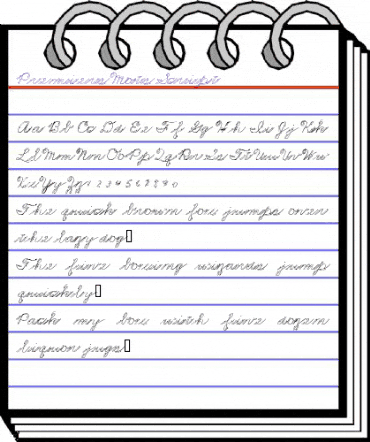 Premiere Mots Script
Aa Bb Cc Dd Ee Ff Gg Hh Ii Jj Kk
Ll Mm Nn Oo Pp Qq Rr Ss Tt Uu Vv Ww
Xx Yy Zz 1 2 3 4 5 6 7 8 9 0
The quick brown fox jumps over
the lazy dog
The five boxing wizards jump
quickly
Pack my box with five dozen
liquor jugs